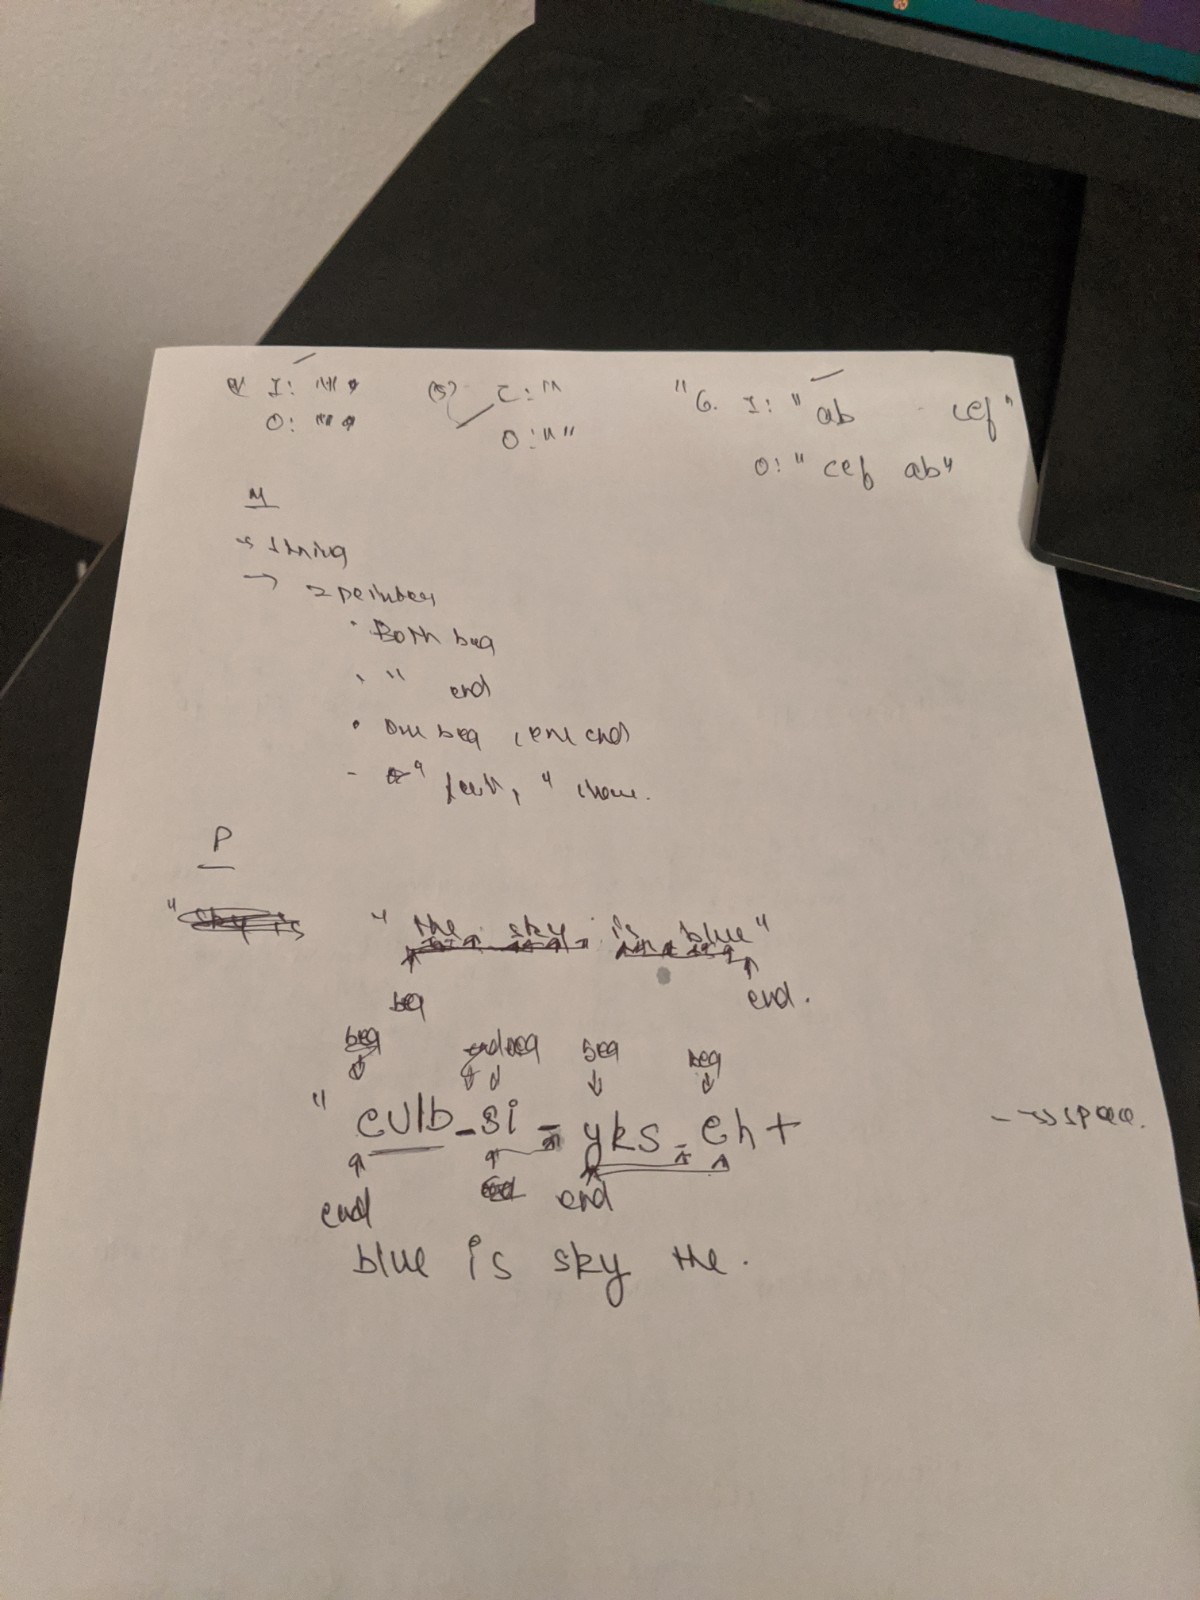 I: (5) I: " "6. I: "ab cef"
O: O: " " O: "cef ab"
M
→ string
→ 2 pointers
• Both beg
• " end
• One beg, one end
P
"sky is " "the sky is blue"
beg end.
beg end beg beg beg
"eulb_si_yks_eht - → space.
end end end
blue is sky the.